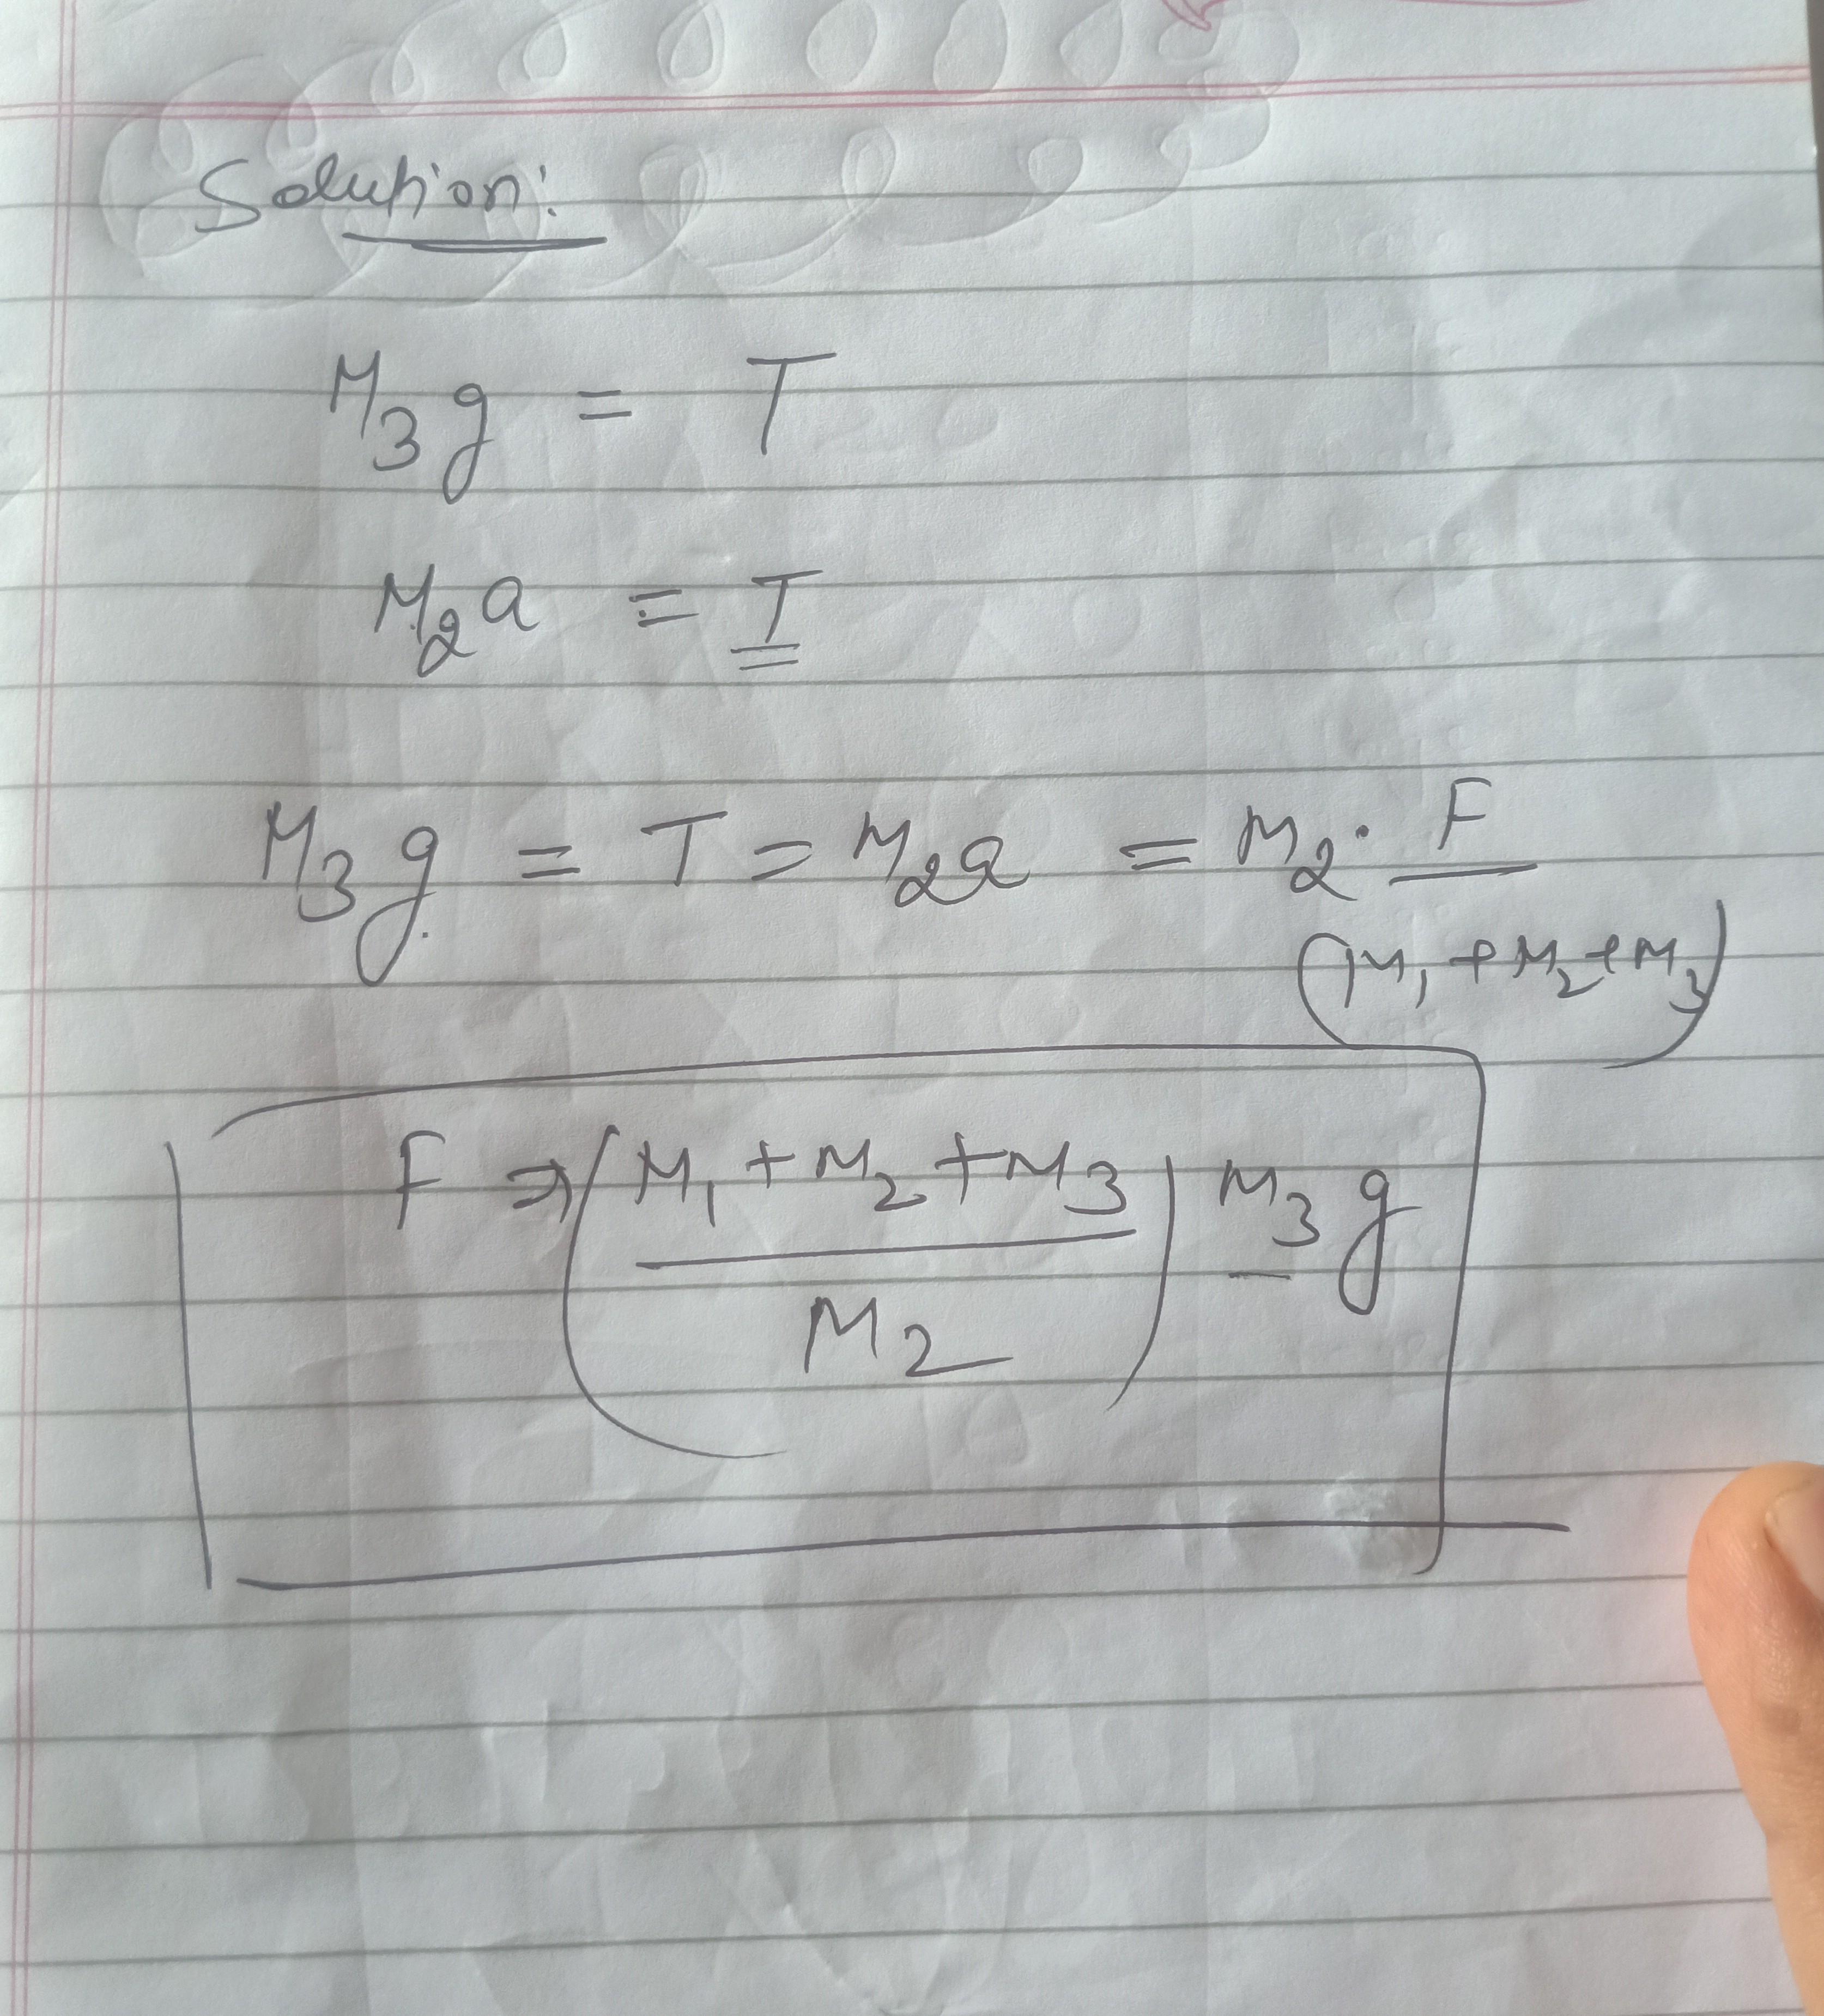 Solution:
M₃g = T
M₂a = T
M₃g = T = M₂a = M₂ · F
(M₁ + M₂ + M₃)
F ⇒ (M₁ + M₂ + M₃) M₃g
M₂